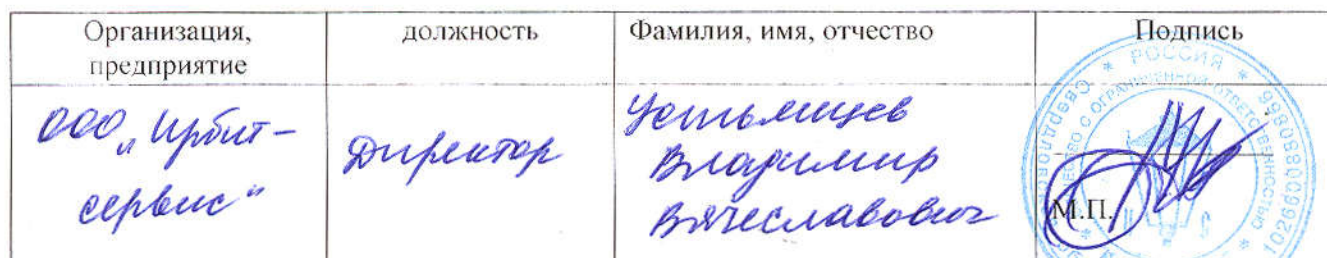 Организация,
предприятие
должность
Фамилия, имя, отчество
Подпись
ООО „Ирбит-
сервис“
Директор
Устьянцев
Владимир
Вячеславович
М.П.
* РОССИЯ *
ОТВЕТСТВЕННОСТЬЮ